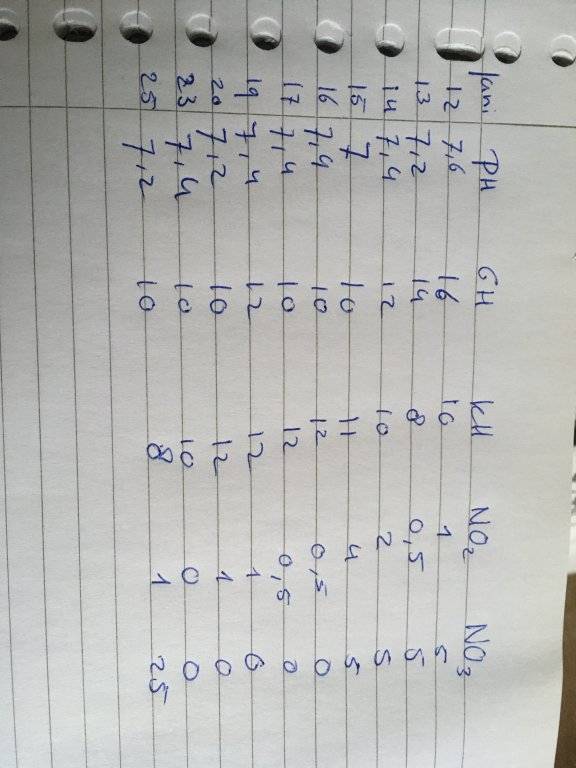 Jani PH GH KH NO₂ NO₃
12 7,6 16 10 1 5
13 7,2 14 8 0,5 5
14 7,4 12 10 2 5
15 7 10 11 4 5
16 7,4 10 12 0,5 0
17 7,4 10 12 0,5 0
19 7,4 12 12 1 0
20 7,2 10 12 1 0
23 7,4 10 10 0 0
25 7,2 10 8 1 25